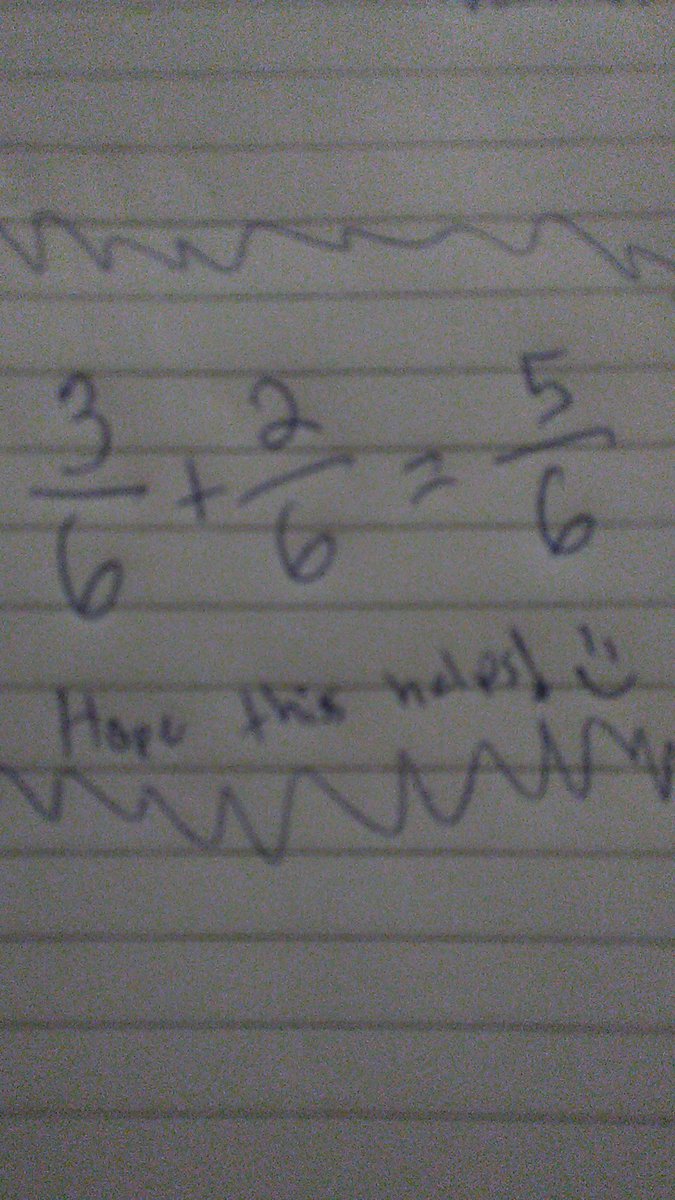 3/6 + 2/6 = 5/6
Hope this helps! :)